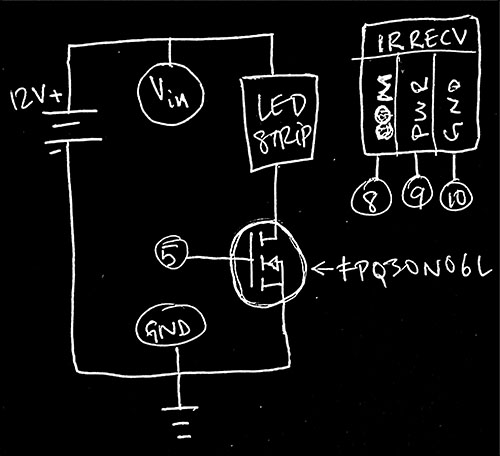 12V+
Vin
LED
STRIP
IR RECV
COM
PWR
GND
8
9
10
5
←FPQ30N06L
GND